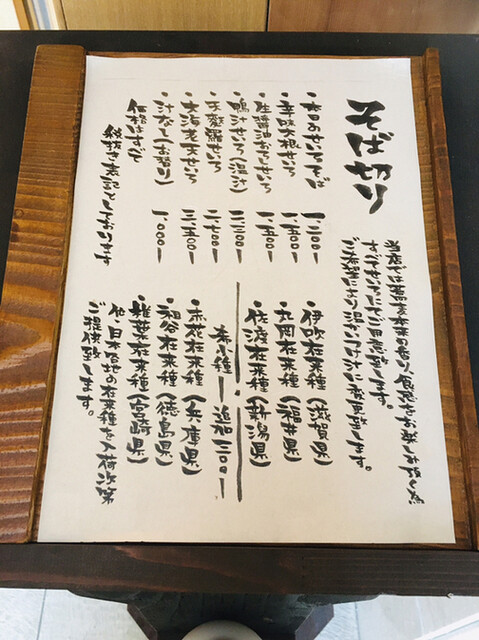 そば切り
当店では蕎麦本来の香り、食感をお楽しみ頂く為
すべてせいろにてご用意致します。
ご希望により温かいつけ汁に変更致します。
・本日の
・辛味大根せいろ 一、五〇〇ー
・生醤油おろしせいろ 一、五〇〇ー
・鴨汁せいろ(温汁) 二、二〇〇ー
・天麩羅せいろ 二、七〇〇ー
・大海老天せいろ 三、五〇〇ー
・汁なし(お替り) 一、〇〇〇ー
価格はすべて
税抜き表記としております
・伊吹在来種(滋賀県)
・丸岡在来種(福井県)
・佐渡在来種(新潟県)
希少種ー追加二〇〇ー
・赤花在来種(兵庫県)
・祖谷在来種(徳島県)
・椎葉在来種(宮崎県)
他、日本各地の在来種を入荷次第
ご提供致します。